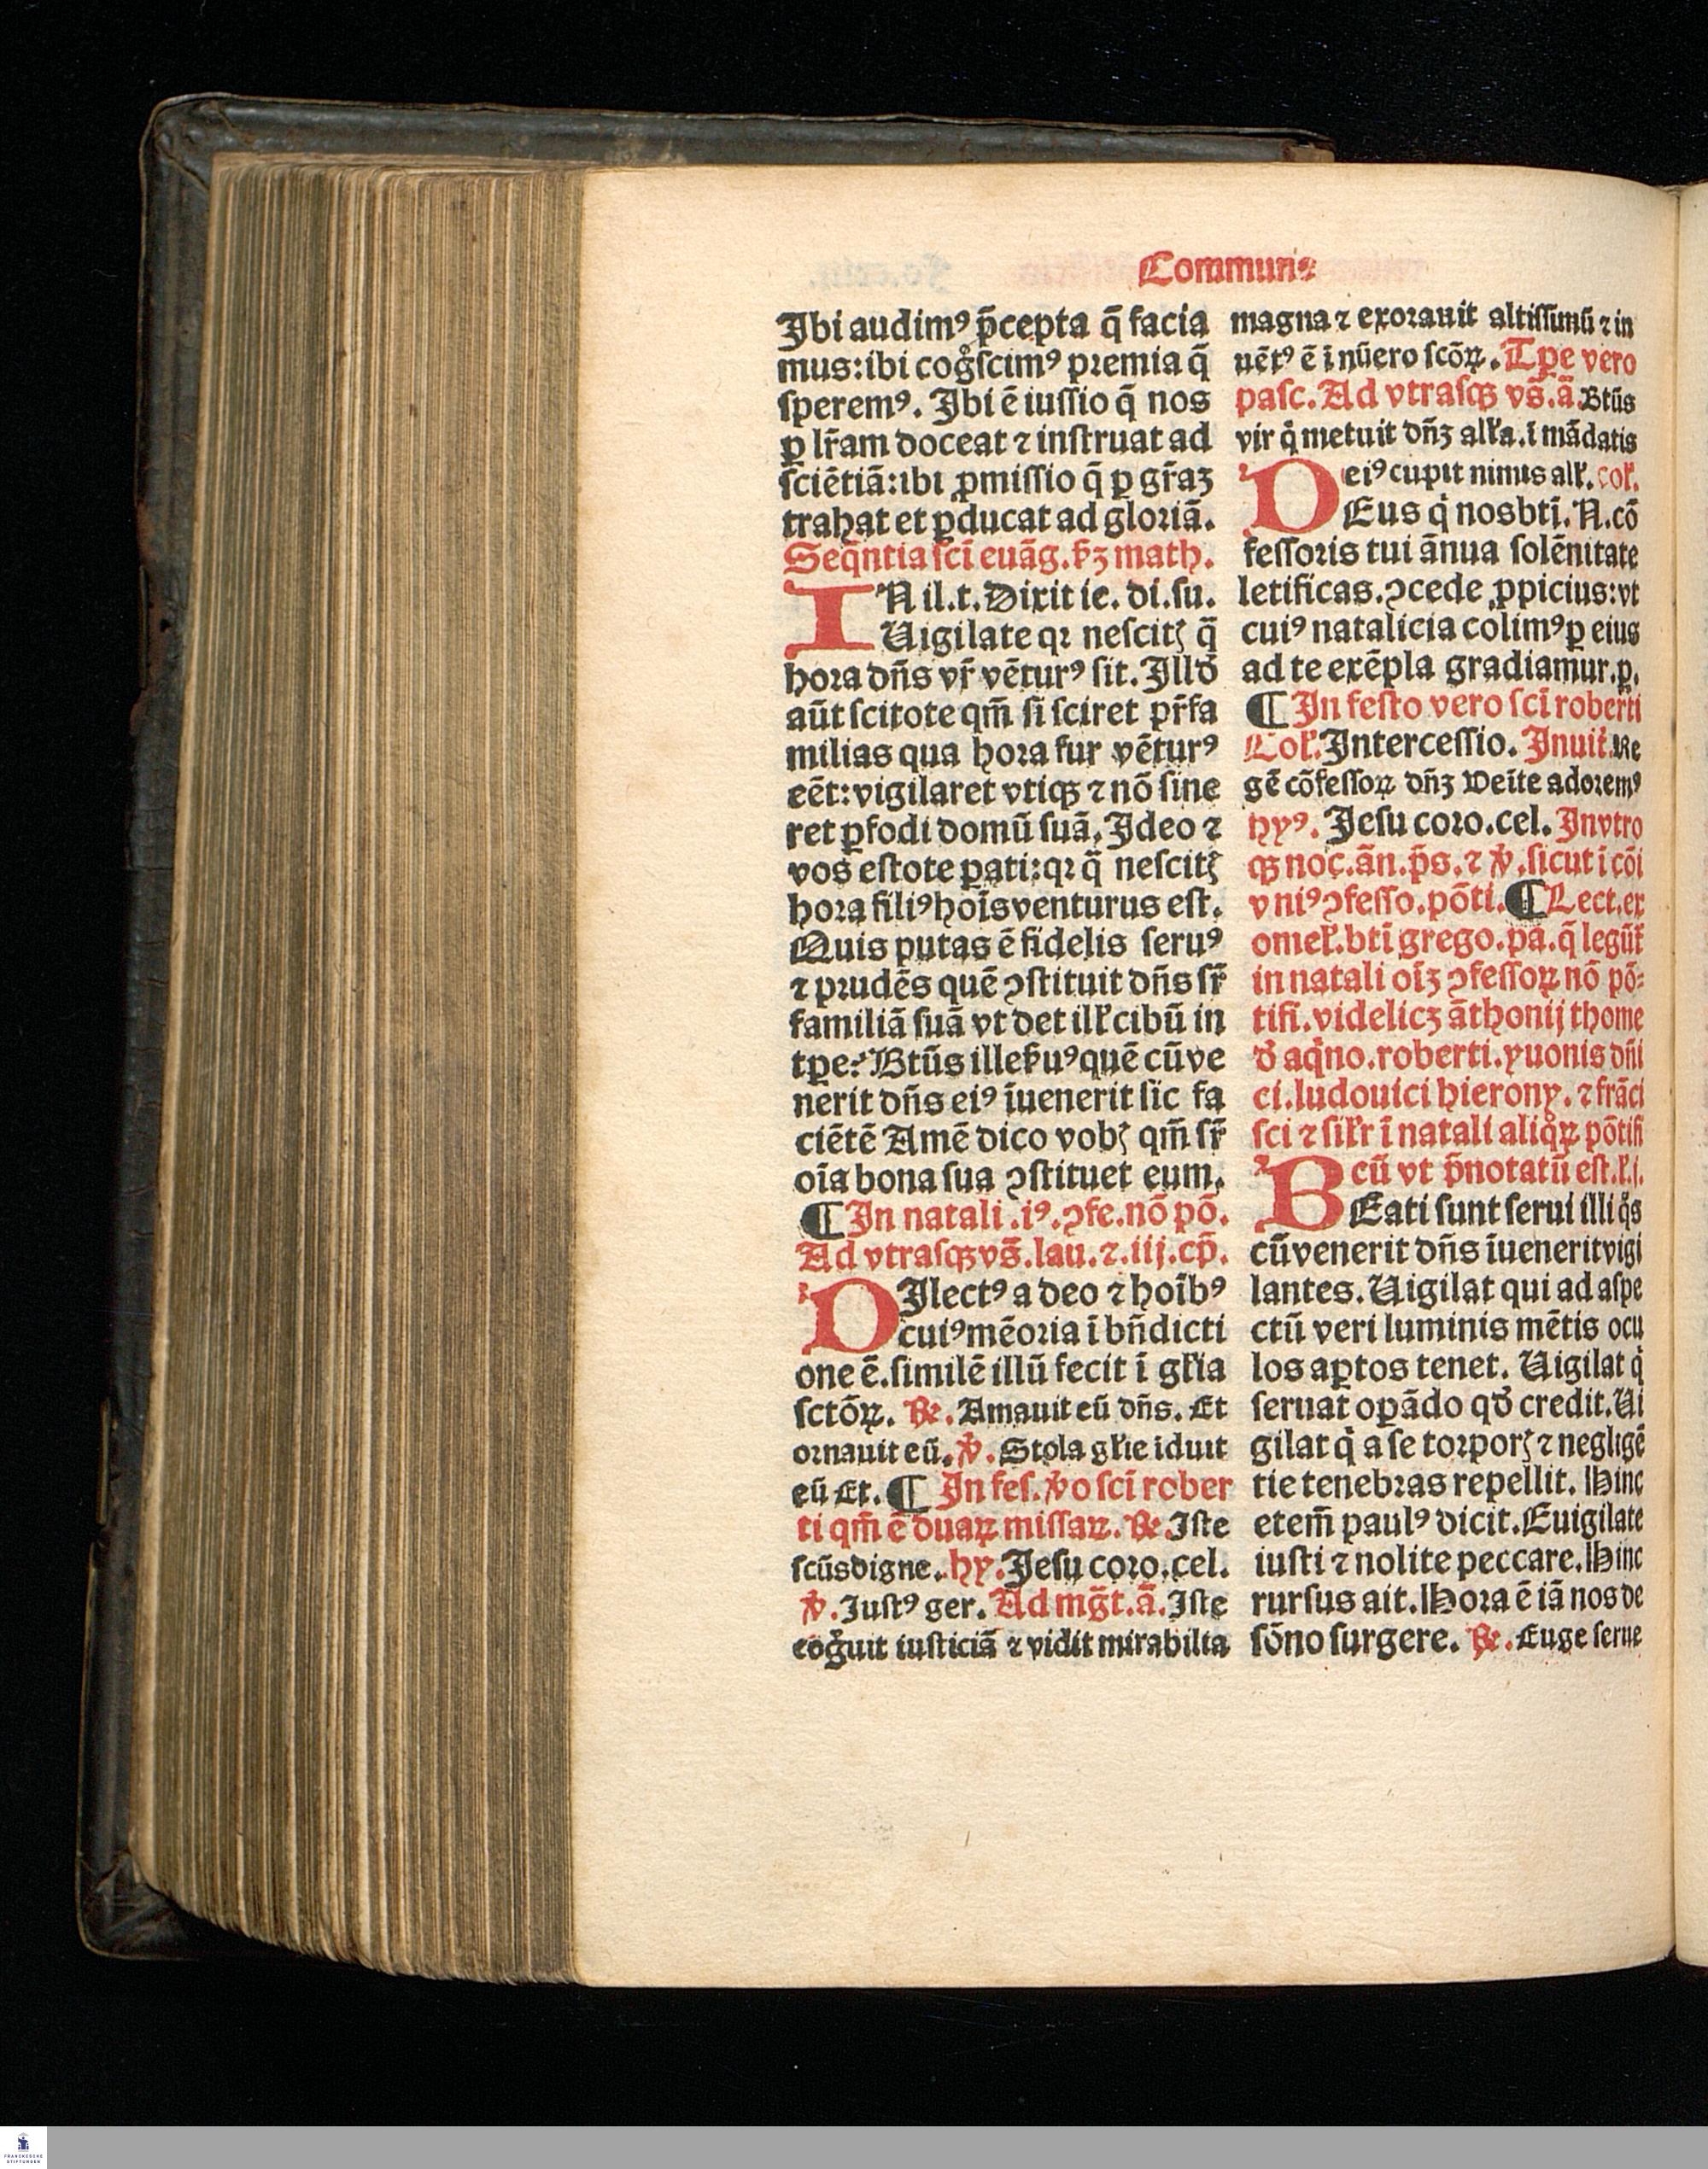 Communis
Ibi audimꝰ p̄cepta q̄ facia
mus: ibi cogͦscimꝰ premia q̄
speremꝰ. Ibi ē iussio q̄ nos
ꝑ lr̄am doceat ⁊ instruat ad
sciētiā: ibi ꝓmissio q̄ ꝑ gr̄aꝫ
trahat et ꝑducat ad gloriā.
Seq̄ntia scī euāg. ẜꝫ math.
IN il. t. Dixit ie. di. su.
Uigilate qꝛ nescitꝭ q̄
hora dn̄s vr̄ vētur⁹ sit. Illd̓
aūt scitote qm̄ si sciret pr̄fa
milias qua hora fur vēturꝰ
eēt: vigilaret vtiqꝫ ⁊ nō sine
ret ꝑfodi domū suā. Ideo ⁊
vos estote ꝑati: qꝛ q̄ nescitꝭ
hora filiꝰ hoīs venturus est.
Quis putas ē fidelis seruꝰ
⁊ prudēs quē ꝯstituit dn̄s sr̄
familiā suā vt det ill̓ cibū in
tꝑe? Btūs ille ẜuꝰ quē cū ve
nerit dn̄s eiꝰ īuenerit sic fa
ciētē Amē dico vobꝭ qm̄ sr̄
oīa bona sua ꝯstituet eum.
¶ In natali .iꝰ. ꝯfe. nō pō.
Ad vtrasqꝫ vs̄. lau. ⁊. iij. cp̄.
DIlectꝰ a deo ⁊ hoībꝰ
cuiꝰ mēoria ī bn̄dicti
one ē. similē illū fecit ī gl̓ia
sctōꝝ. ℞. Amauit eū dn̄s. Et
ornauit eū. ℣. Stola gl̓ie iduit
eū Et. ¶ In fes. v̓o scī rober
ti qm̄ ē duaꝝ missaꝝ. ℞. Iste
scūs digne. hy. Iesu coro. cel.
℣. Iustꝰ ger. Ad mḡt. ā. Iste
cog̓uit iusticiā ⁊ vidit mirabilia
magna ⁊ exorauit altissimū ⁊ in
uētꝰ ē ī nūero scōꝝ. Tꝑe vero
pasc. Ad vtrasqꝫ vs̄. ā. Btūs
vir q̇ metuit dn̄ꝫ all̓a. ī mādatis
eiꝰ cupit nimis all̓. col̓.
DEus q̇ nos btī. N. cō
fessoris tui ānua solēnitate
letificas. ꝯcede ꝓpicius: vt
cuiꝰ natalicia colimꝰ ꝑ eius
ad te exēpla gradiamur. ꝑ.
¶ In festo vero scī roberti
Col̓. Intercessio. Inuit̓. Re
gē cōfessoꝝ dn̄ꝫ Ueīte adoremꝰ
hyꝰ. Iesu coro. cel. In vtro
qꝫ noc. ān. p̄s. ⁊ ℣. sicut ī cōi
vniꝰ ꝯfesso. pōti. ¶ Lect. ex
omel̓. btī grego. pa. q̄ legūt̓
in natali oīꝫ ꝯfessoꝝ nō pō-
tifi. videlicꝫ āthonij thome
d̓ aq̇no. roberti. yuonis dn̄i
ci. ludouici hierony. ⁊ frāci
sci ⁊ sil̓r ī natali aliq̊ꝝ pōtifi
cū vt p̄notatū est. l̓. j.
BEati sunt serui illi q̊s
cū venerit dn̄s īuenerit vigi
lantes. Uigilat qui ad aspe
ctū veri luminis mētis ocu
los aꝑtos tenet. Uigilat q̇
seruat oꝑādo qd̓ credit. Ui
gilat q̇ a se torporꝭ ⁊ negligē
tie tenebras repellit. Hinc
etem̄ paulꝰ dicit. Euigilate
iusti ⁊ nolite peccare. Hinc
rursus ait. Hora ē iā nos de
sōno surgere. ℞. Euge serue
FRANCKESCHE
STIFTUNGEN